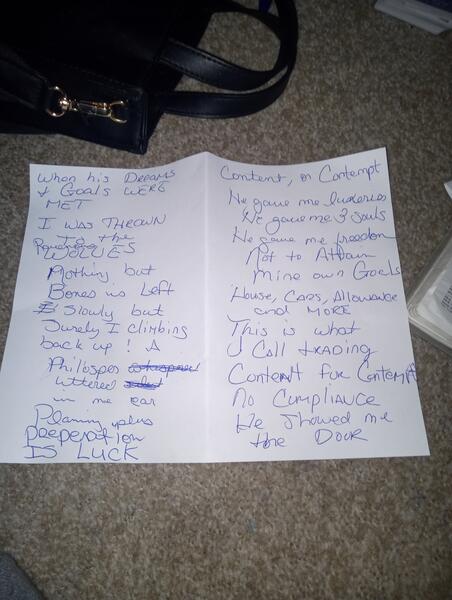 When his DREAMS
& GOALS WERE
MET
I WAS THROWN
To the
WOLVES
Nothing but
Bones is Left
Slowly but
Surely I climbing
back up! A
Philospes
uttered
in me ear
Planing uplus
PREEPERATION
IS LUCK
Content, or Contempt
He gave me luxeries
He gave me 3 souls
He gave me freedom
Not to Attain
mine own Goals
House, Cars, Allowance
and MORE
This is what
I Call trading
Content for Contempt
No Compliance
He showed me
the DOOR